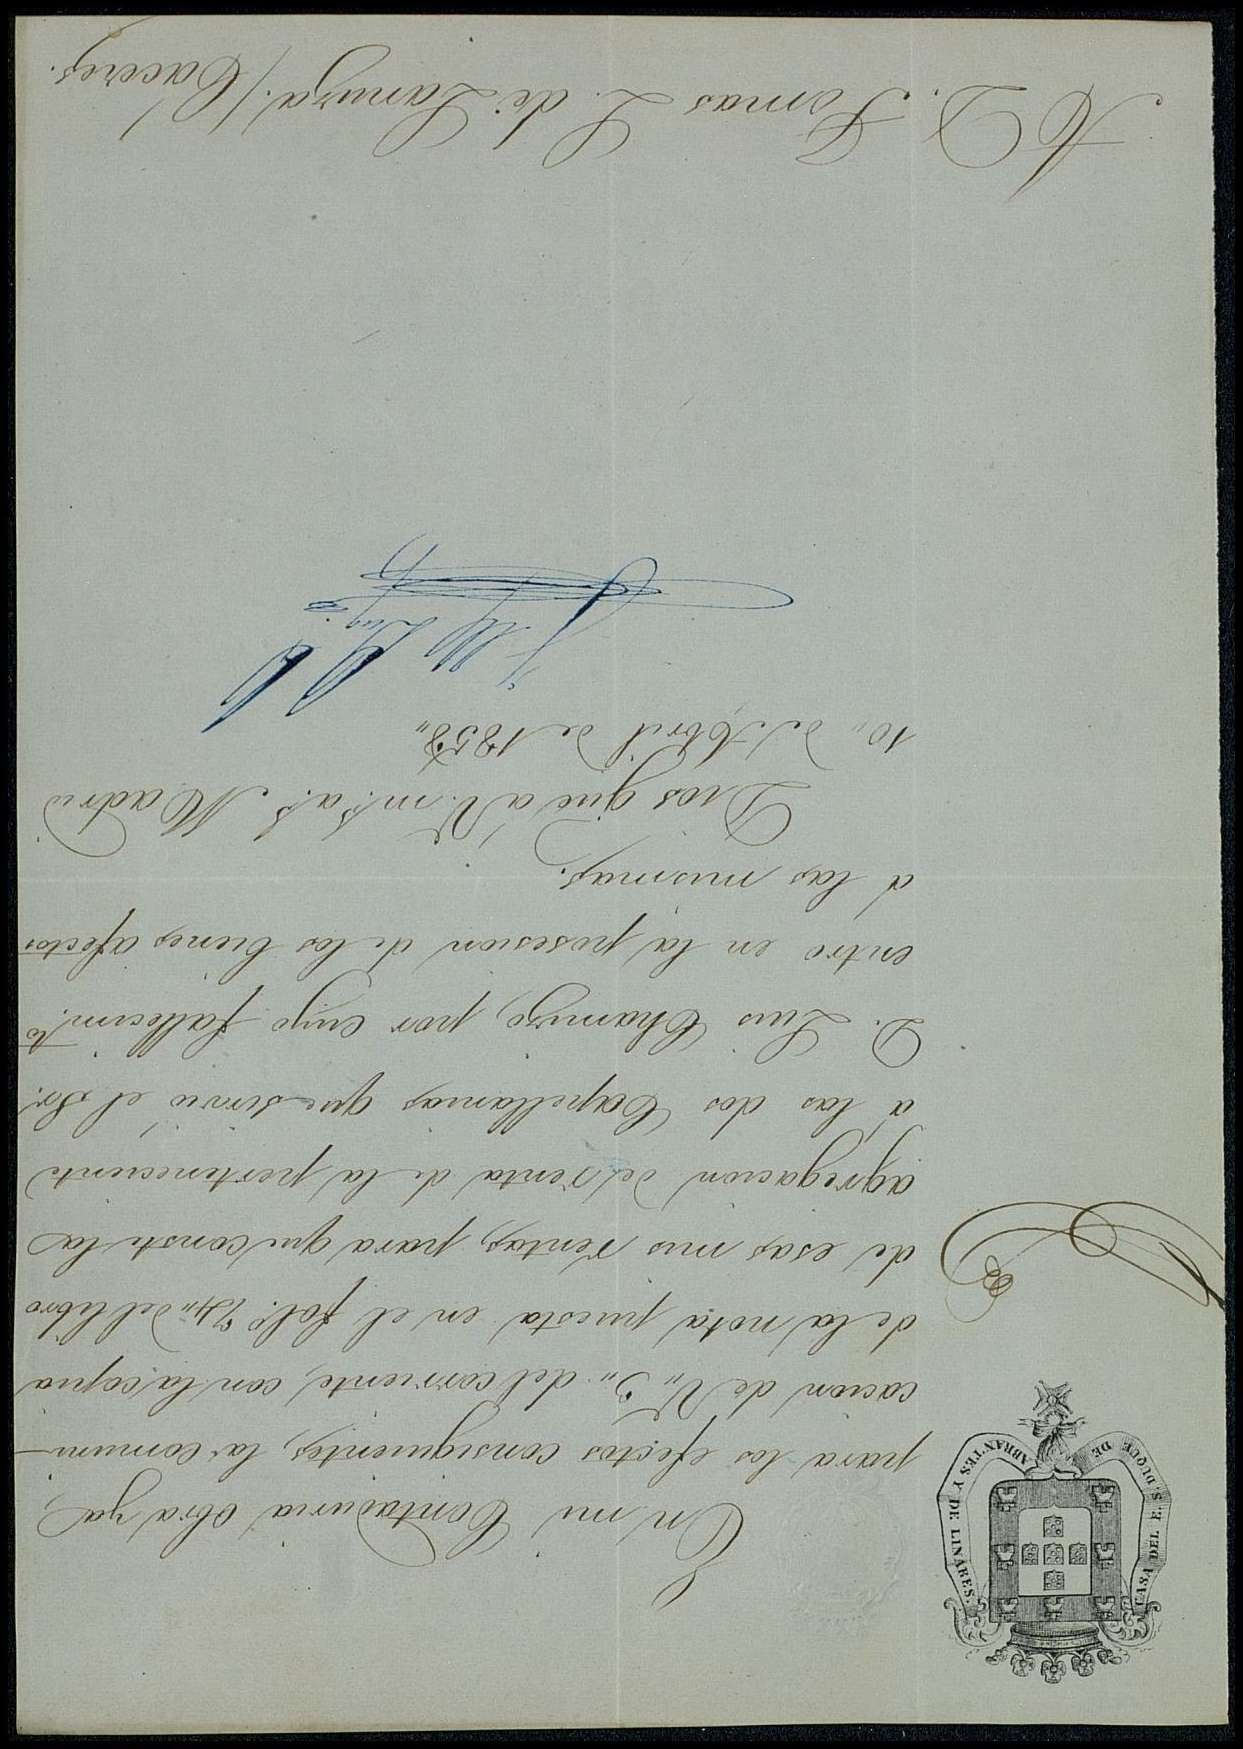 CASA DEL E. S. DUQUE DE ABRANTES Y DE LINARES.
En mi Contaduria obra ya,
para los efectos consiguientes, la comuni-
cacion de V. 3,, del corriente, con la copia
de la nota puesta en el fol.º 74,, del libro
de esas mis rentas, para que conste la
agregacion de renta de la perteneciente
á las dos Capellanias que sirvió el Sr.
D. Luis Chamizo, por cuyo fallecim.to
entro en la posesion de los bienes afectos
á las mismas.
Dios gue á V. m.s a.s Madrid
10,, de Abril de 1858,,
A D. Tomas L. de Lanuza./Caceres.